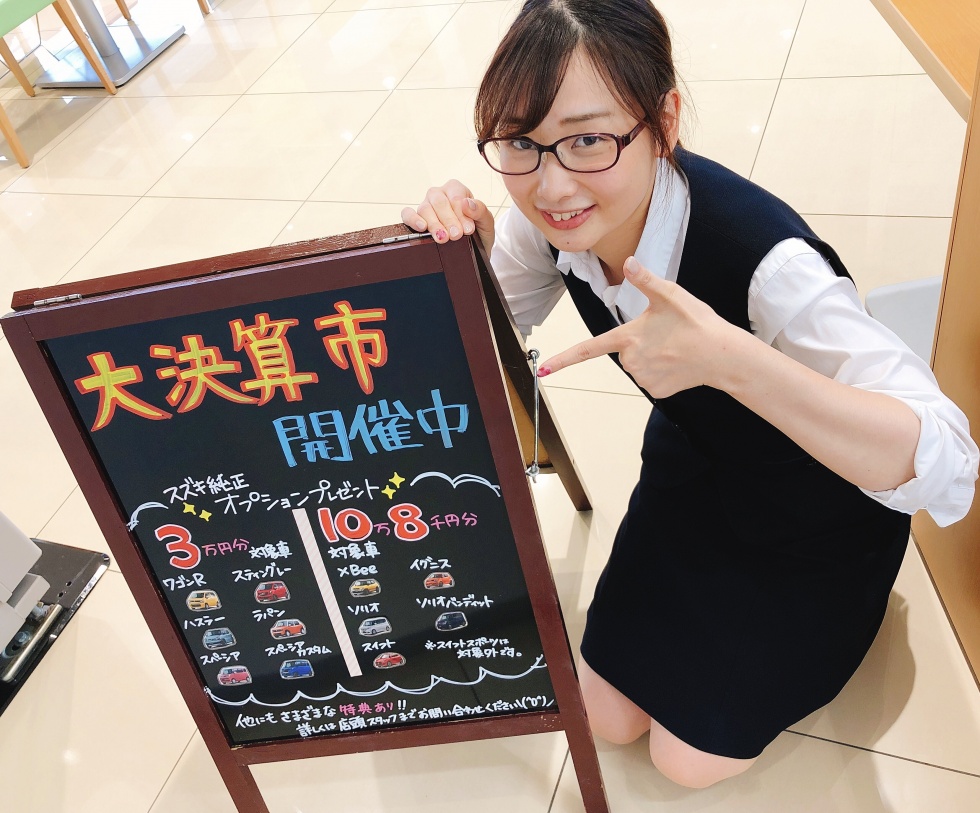 大決算市
開催中
スズキ純正
オプションプレゼント
3万円分 対象車
ワゴンR スティングレー
ハスラー ラパン
スペーシア スペーシアカスタム
10万8千円分
対象車
×Bee イグニス
ソリオ ソリオバンディット
スイフト ※スイフトスポーツは
対象外です。
他にもさまざまな特典あり!!
詳しくは店頭スタッフまでお問い合わせください(^o^)/